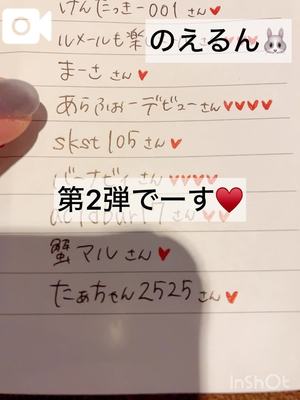 けんたっきー001さん♥
ルメールも楽
のえるん🐰
まーささん♥
あらふぉーデビューさん♥♥♥♥
skst105さん♥
さん♥♥♥♥
第2弾でーす♥
蟹マルさん♥
たぁちゃん2525さん♥
InShOt